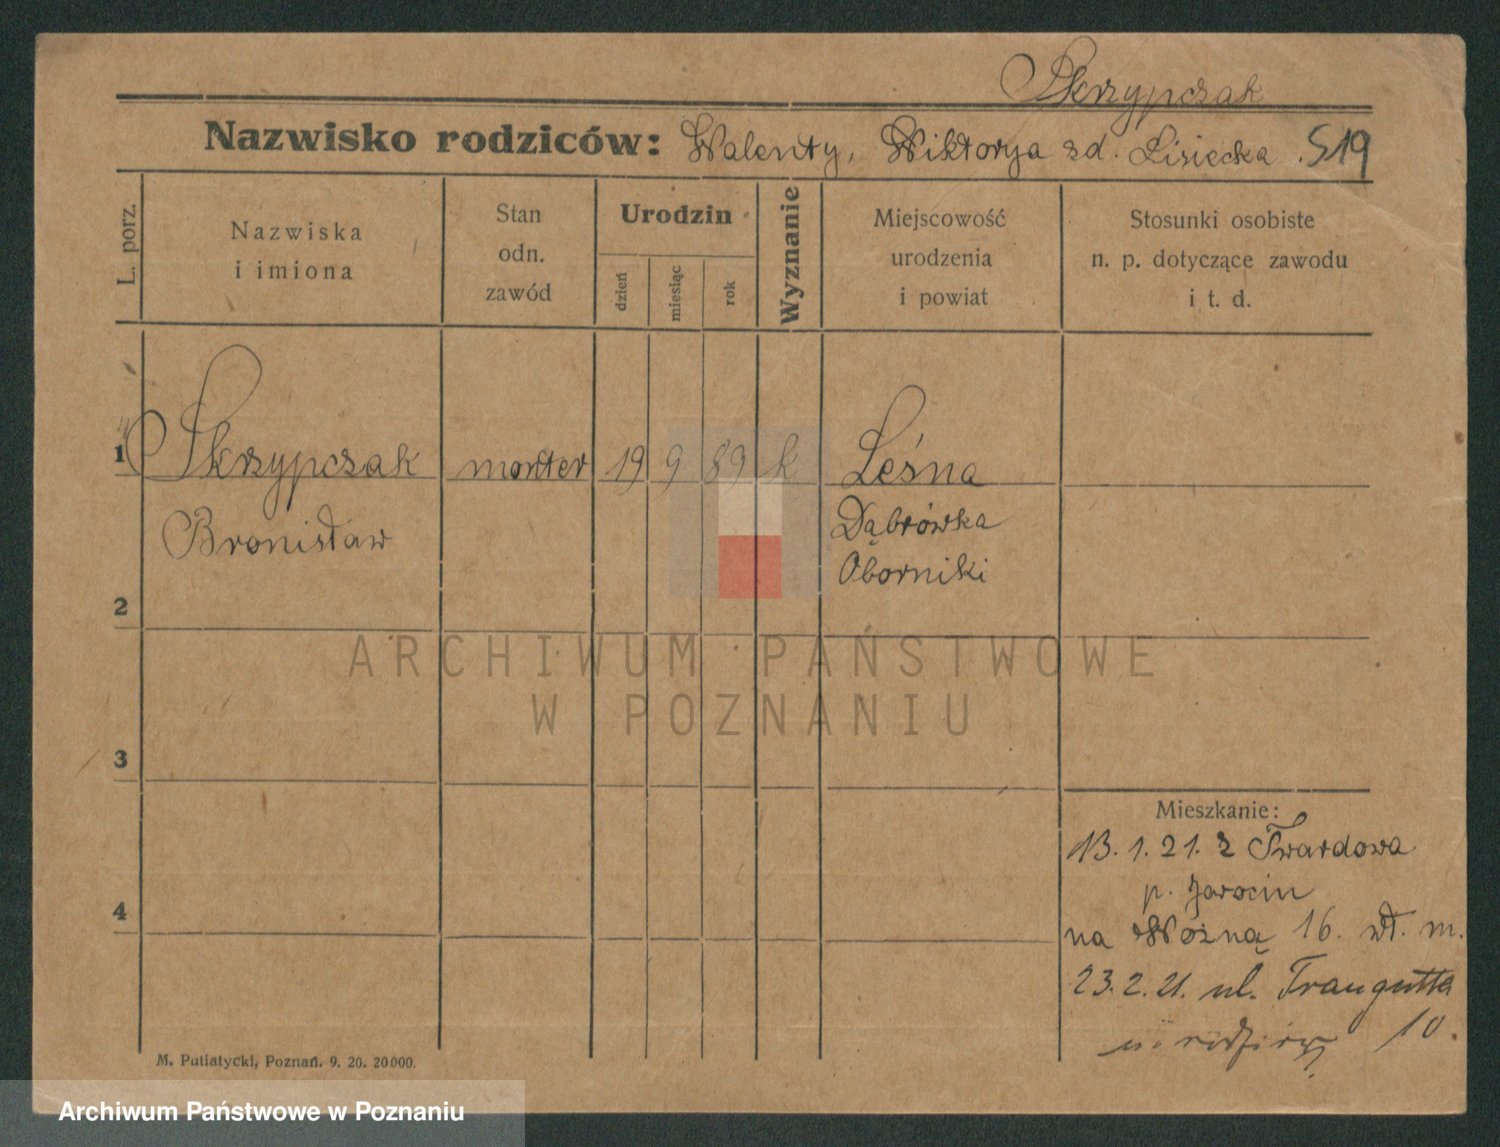 Skrzypczak
Nazwisko rodziców: Walenty, Wiktorya zd. Lisiecka. S19
L. porz.
Nazwiska
i imiona
Stan
odn.
zawód
Urodzin
dzień
miesiąc
rok
Wyznanie
Miejscowość
urodzenia
i powiat
Stosunki osobiste
n. p. dotyczące zawodu
i t. d.
1 Skrzypczak monter 19 9 89 k Leśna
Bronisław Dąbrówka
Oborniki
2
ARCHIWUM PAŃSTWOWE
W POZNANIU
3
Mieszkanie:
13. 1. 21. z Twardowa
p. Jarocin
4
na Woźną 16. wł. m.
23. 2. 21. ul. Traugutta
10.
u rodziców
M. Putiatycki, Poznań. 9. 20. 20000.
Archiwum Państwowe w Poznaniu